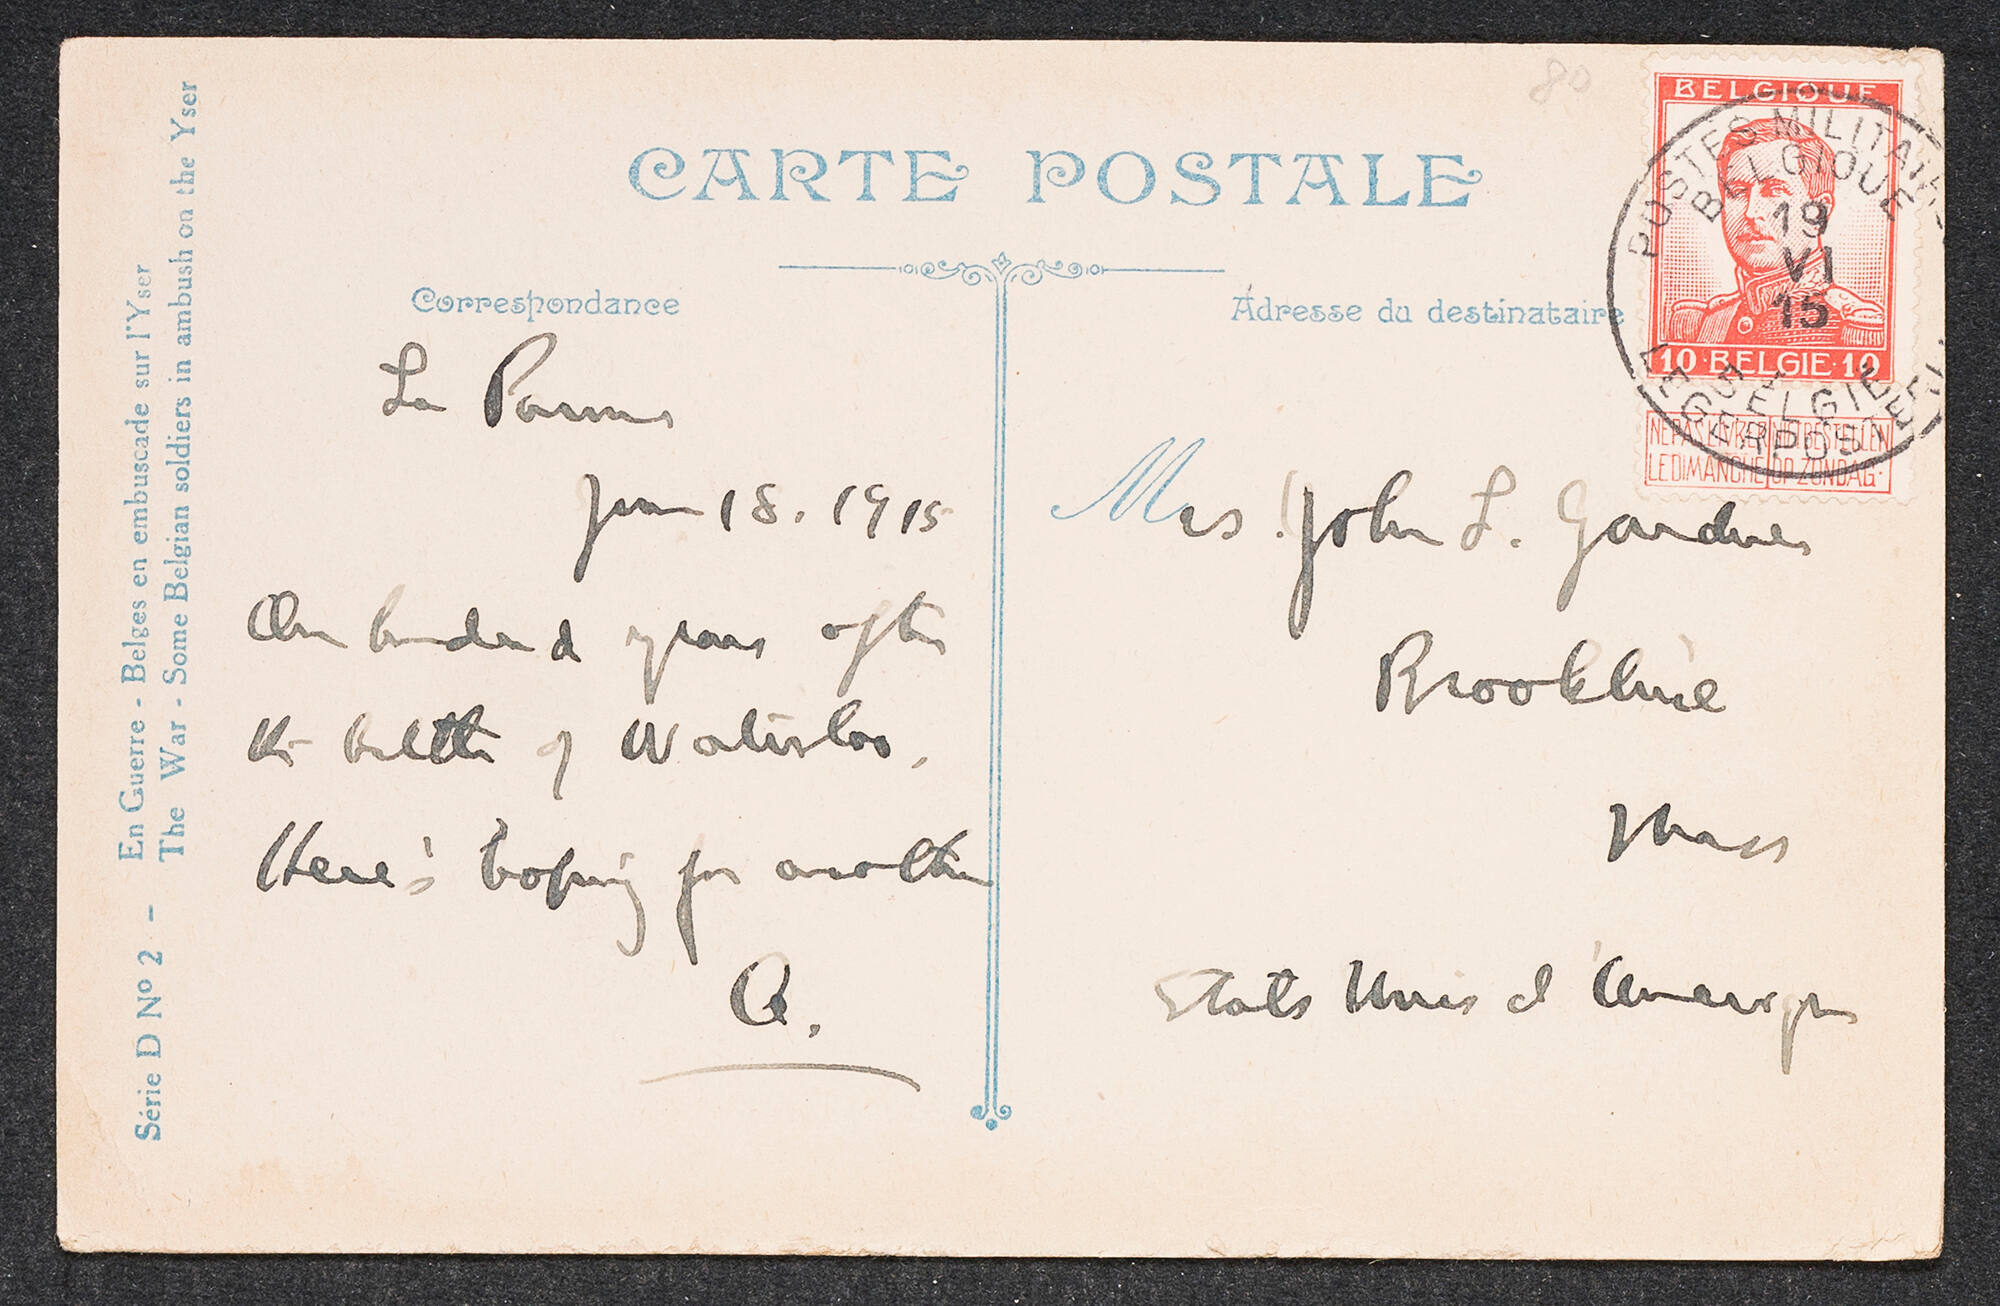 80
CARTE POSTALE
Correspondance
Adresse du destinataire
BELGIQUE
10 · BELGIE · 10
NE PAS LIVRER NIET BESTELLEN
LE DIMANCHE OP ZONDAG
POSTES MILITAIRES
BELGIQUE
19
VI
15
BELGIE
LEGERPOSTERIJ
La Panne
June 18. 1915
One hundred years after
the battle of Waterloo.
Here's hoping for another
A.
Mrs. John L. Gardner
Brookline
Mass
Etats Unis d'Amerique
Série D No 2 – En Guerre - Belges en embuscade sur l'Yser
The War - Some Belgian soldiers in ambush on the Yser